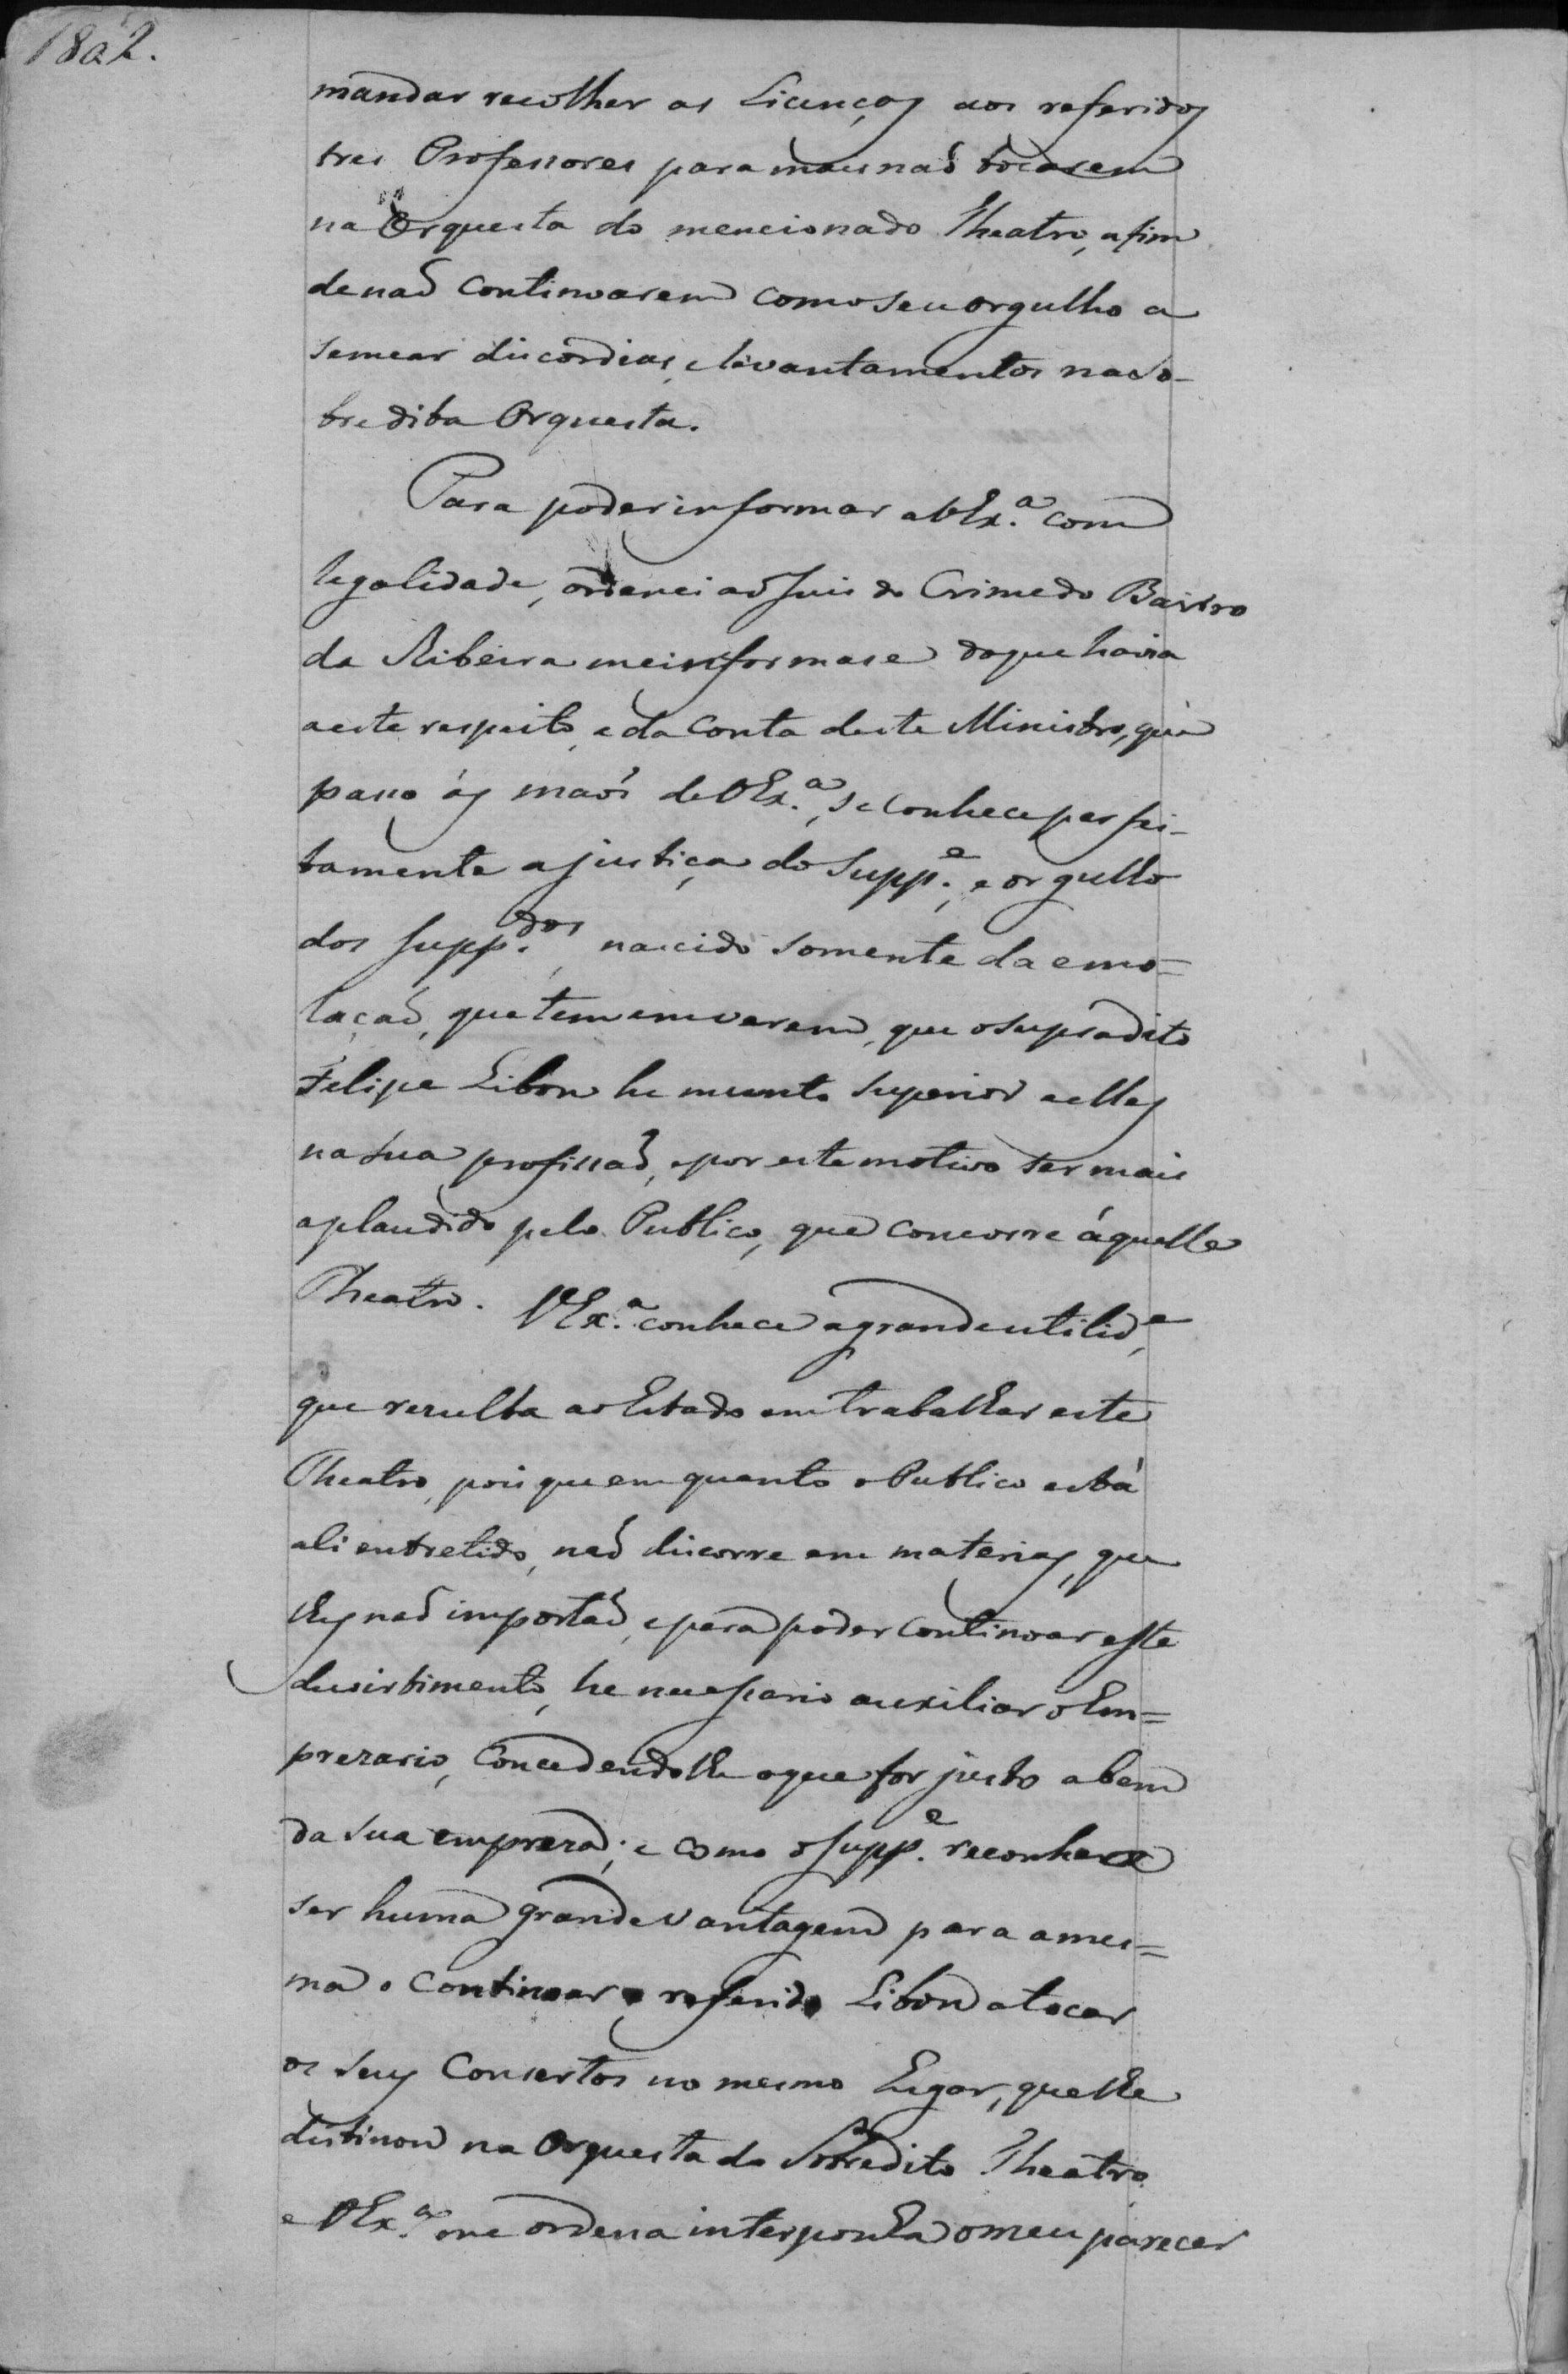 1802.
mandar recolher as Licenças aos referidos
tres Professores para mais naõ tocarem
na Orquesta do mencionado Theatro, afim
de naõ continoarem com o seu orgulho a
semear discordias, e levantamentos na so-
bredita Orquesta.
Para poder informar a VEx.ª com
legalidade, ordenei ao Juis do Crime do Bairro
da Ribeira me informase do que havia
a este respeito, e da conta deste Ministro, que
passo ás maõs de VEx.ª, se conhece perfei-
tamente a justiça do Supp.e, e orgulho
dos Supp.dos, nascido somente da emo=
laçaõ, que tem em verem, que o supradito
Felipe Libon he muinto superior a elles
na sua profissaõ, e por este motivo ser mais
aplaudido pelo Publico, que concorre áquelle
Theatro. VEx.ª conhece a grande utilid.e,
que rezulta ao Estado em trabalhar este
Theatro, pois que em quanto o Publico está
ali entretido, naõ discorre em materias, que
lhes naõ importaõ, e para poder continoar este
devirtimento, he necessario auxiliar o Em=
prezario, concedendolhe o que for justo a bem
da sua empreza; e como o Supp.e reconhece
ser huma grande vantagem para a mes=
ma o continoar o referido Libon a tocar
os seus Consertos no mesmo Lugar, que lhe
distinou na Orquesta do Sobredito Theatro.
e VEx.ª me ordena interponha o meu parecer